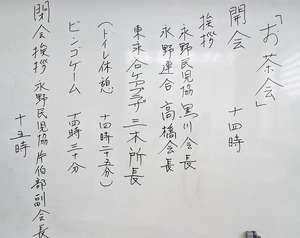 「お茶会」
開会 十四時
挨拶
永野民児協 黒川会長
永野連合 高橋会長
東永谷ケアプラザ 三木所長
(トイレ休憩 十四時二十五分)
ビンゴゲーム 十四時三十分
閉会挨拶 永野民児協 岸伯部副会長
十五時